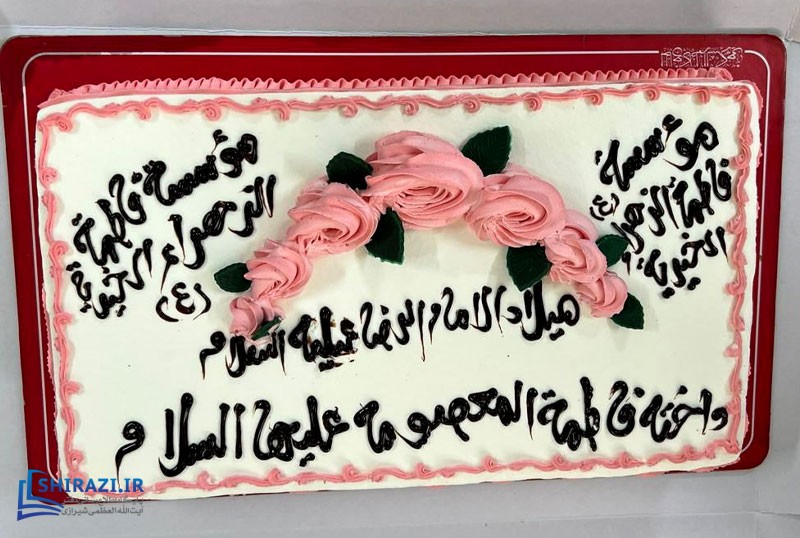 مؤسسة
فاطمة الزهراء
(ع)
الخيرية
مؤسسة فاطمة
الزهراء الخيرية
(ع)
ميلاد الامام الرضا عليه السلام
واخته فاطمة المعصومة عليها السلام
SHIRAZI.IR
آیت‌الله العظمی شیرازی